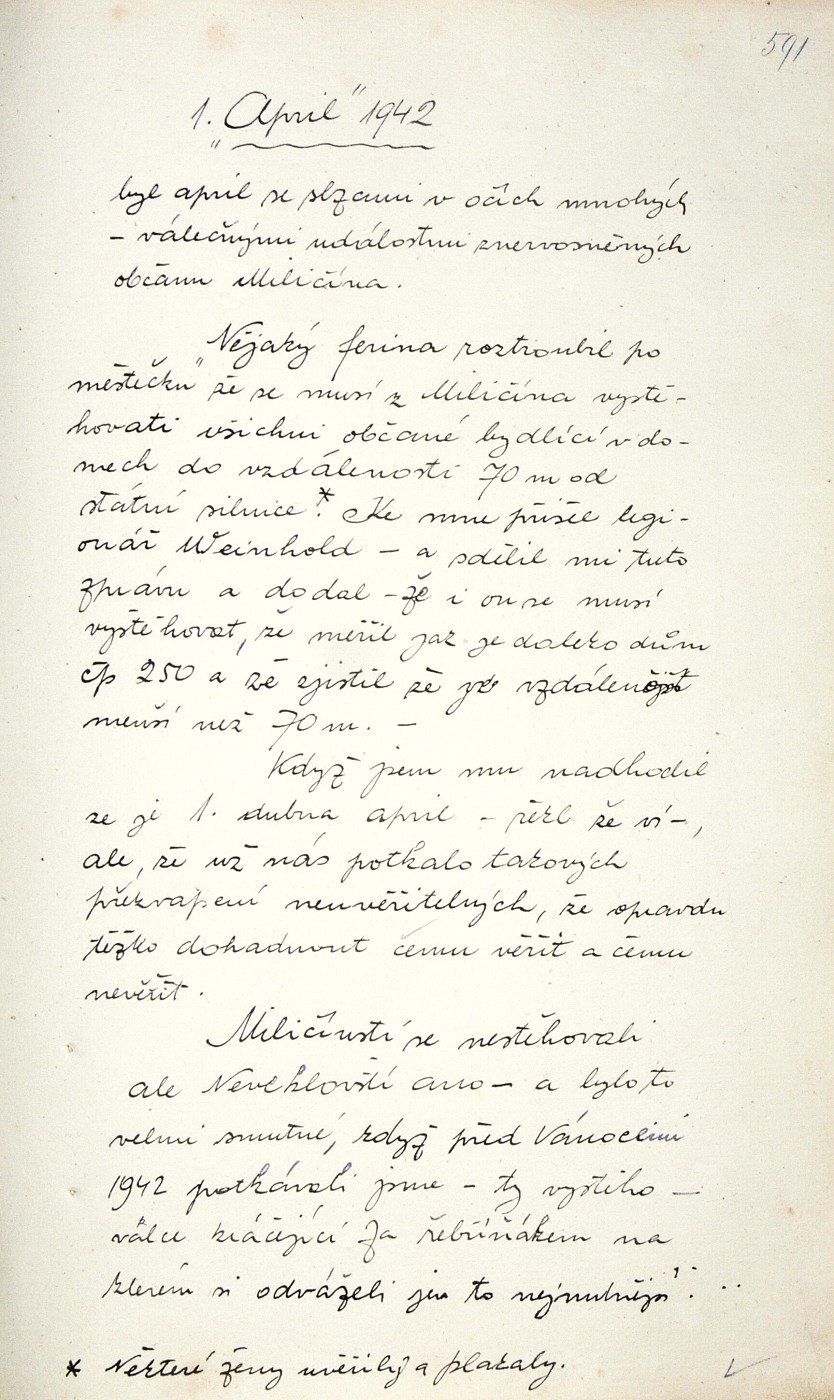 591
1. „April" 1942
byl april se slzami v očích mnohých
- válečnými událostmi znervosněných
občanu Miličína.
Nějaký ferina roztroubil po
městečku „že se musí z Miličína vystě-
hovati všichni občané bydlící v do-
mech do vzdálenosti 70 m od
státní silnice".* Ke mne přišel legi-
onář Weinhold - a sdělil mi tuto
zprávu a dodal - že i on se musí
vystěhovat, že měřil jak je daleko dům
čp 250 a že zjistil že je vzdálenost
menší než 70 m. -
Když jsem mu nadhodil
ze je 1. dubna april - řekl že ví -,
ale, že už nás potkalo takových
překvapení neuvěřitelných, že opravdu
těžko dohadnout čemu věřit a čemu
nevěřit.
Miličínstí se nestěhovali
ale Neveklovští ano - a bylo to
velmi smutné, když před Vánocemi
1942 potkávali jsme - ty vystěho -
válce kráčející za řebřiňákem na
kterém si odváželi jen to nejnutnější. . .
* Některé ženy uvěřily a plakaly.